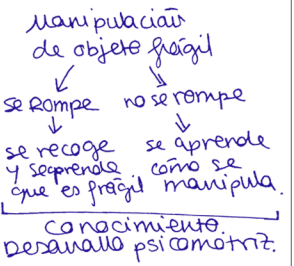 Manipulación
de objeto frágil
se rompe no se rompe
se recoge se aprende
y se aprende cómo se
que es frágil manipula.
conocimiento.
Desarrollo psicomotriz.